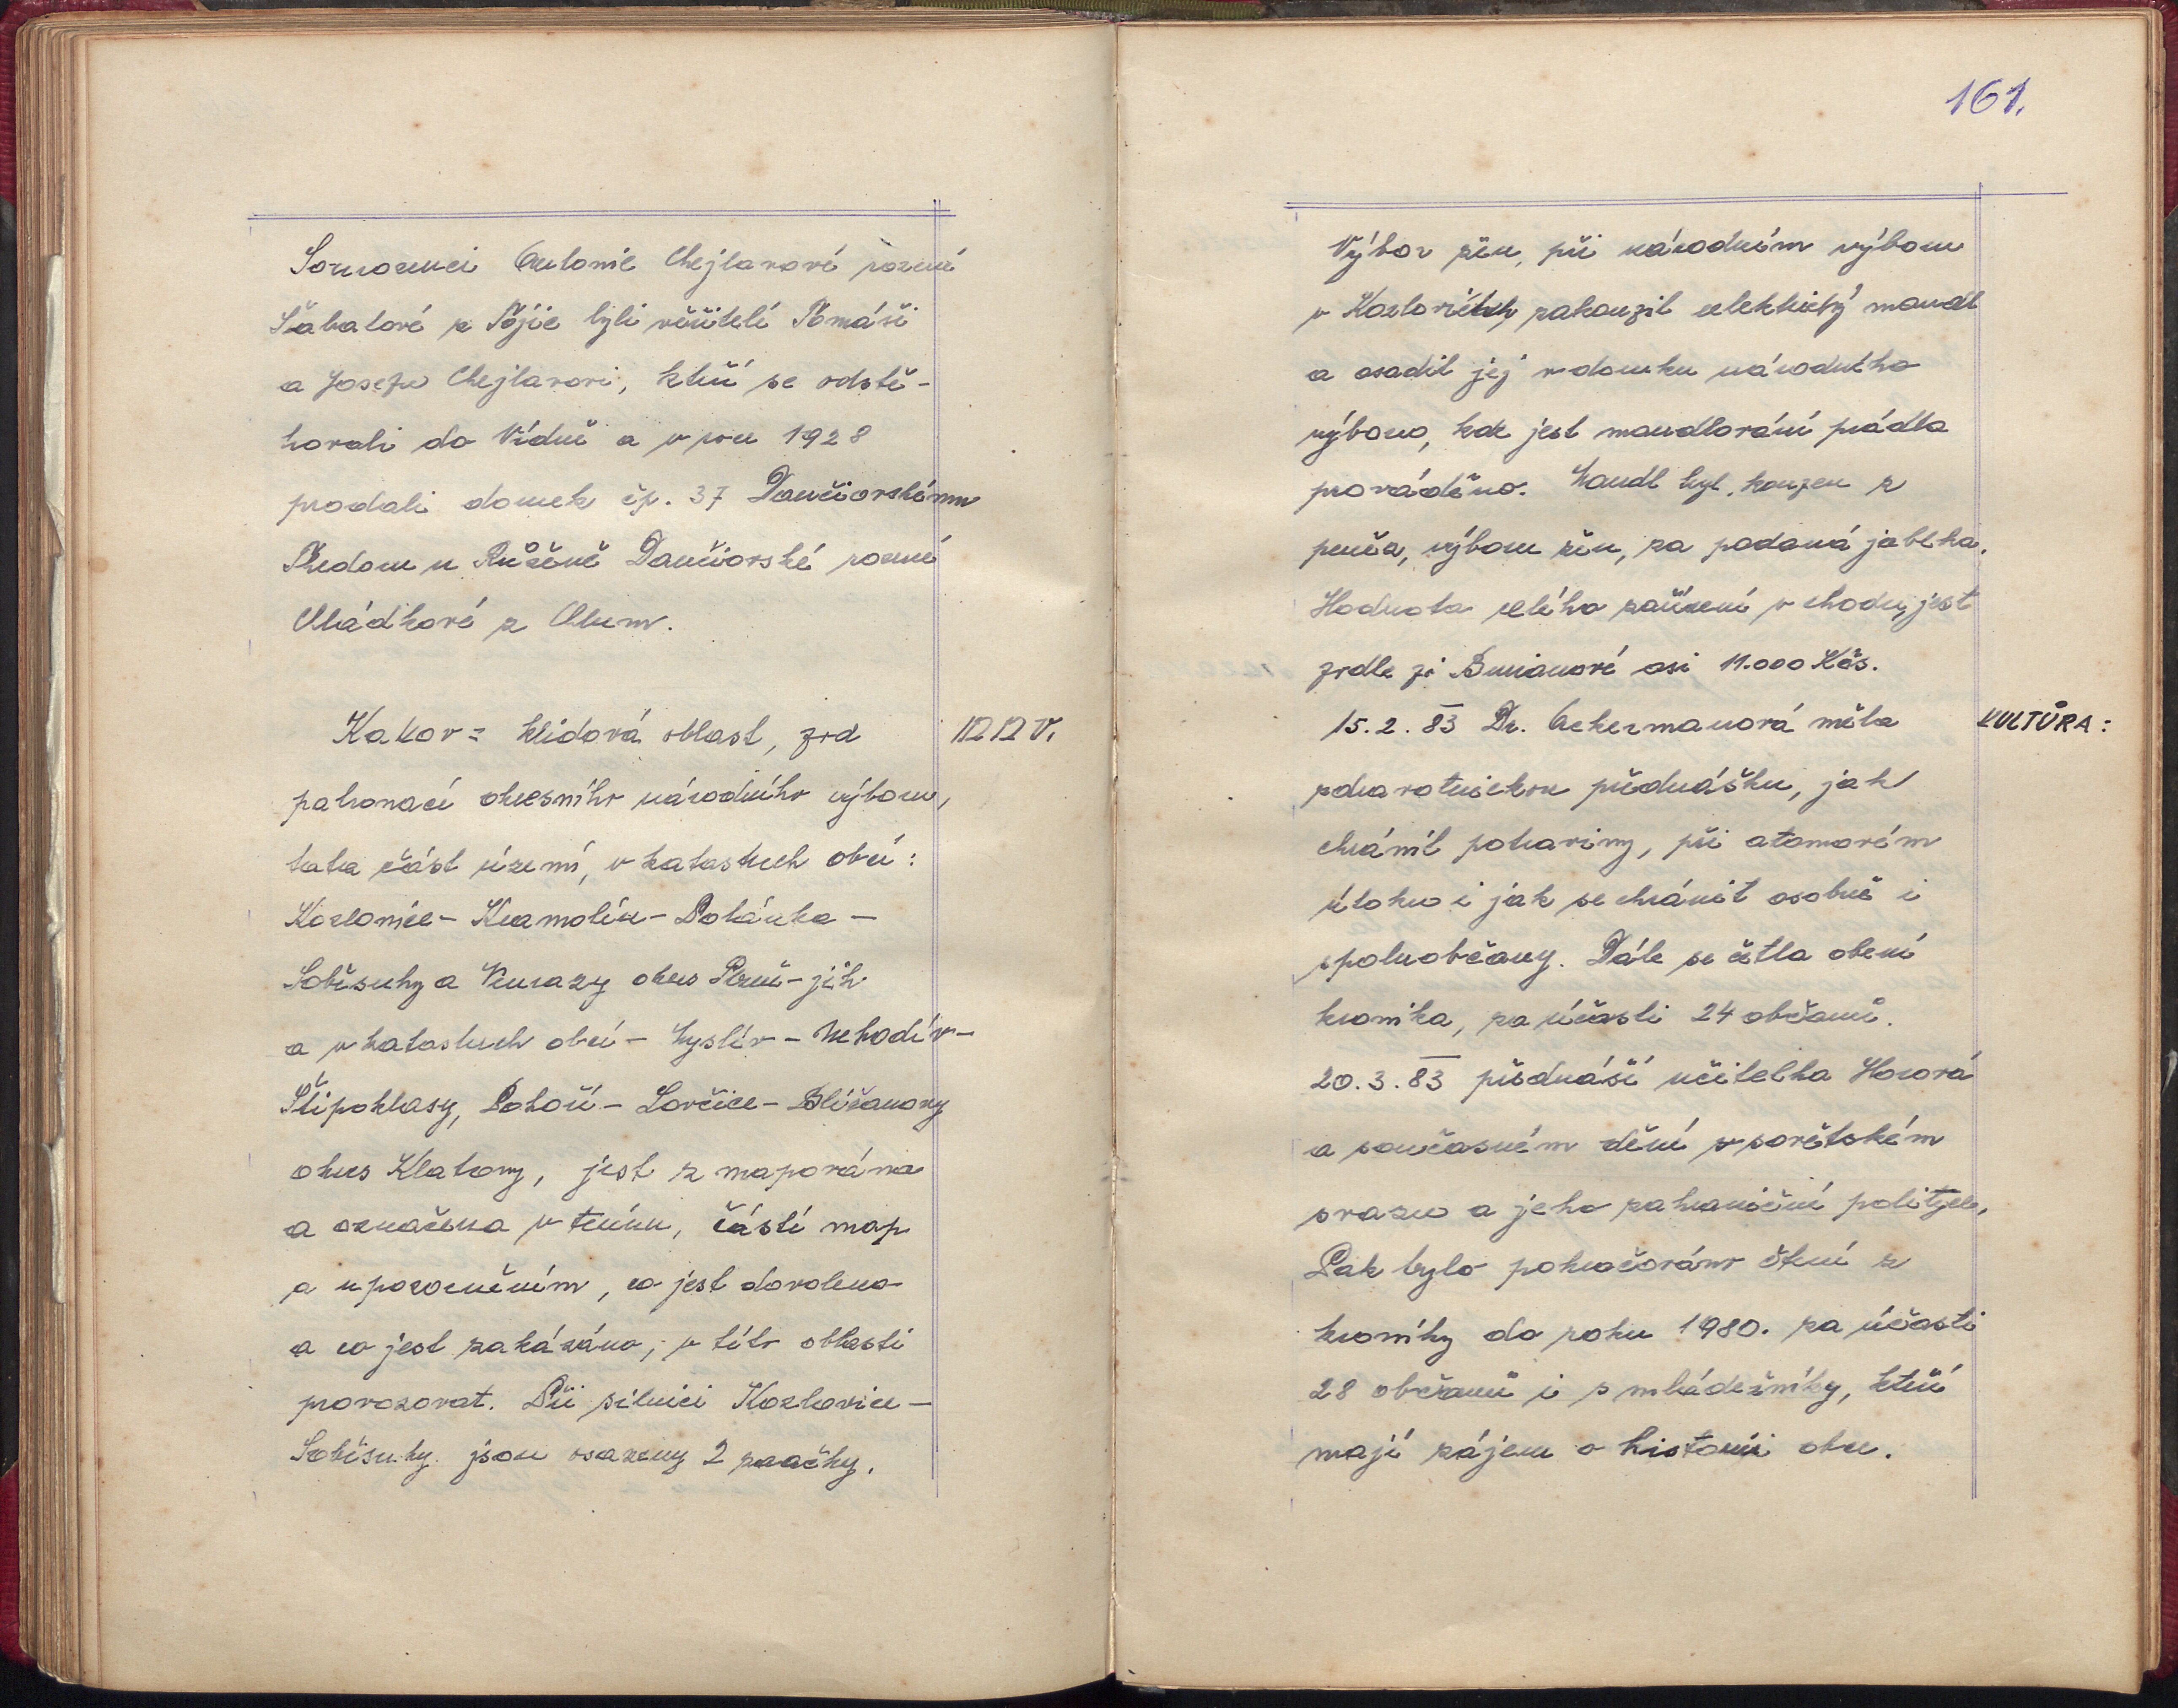 Sourozenci Antonie Chejlavové rozené
Šabatové z Týjic byli věřitelé Tomáši
a Josefu Chejlavovi, kteří se odstě-
hovali do Vídně a v roce 1928
prodali domek čp. 37 Dančiovskému
Thedoru n Růženě Dančiovské rozené
Chládkové z Chlum.
Kakov = klidová oblast, pod
patronací okresního národního výboru,
tato část území, v katastrech obcí:
Kozlovice - Kramolín - Polánka -
Soběsuky a Vmrazy okres Plzeň - jih
a v katastrech obcí - Myslív - Nehodív -
Štipoklasy, Pohoří - Lovčice - Bližanovy
okres Klatovy, jest z mapována
a označena v terénu, částí map
a upozorněním, co jest dovoleno
a co jest zakázáno, v této oblasti
provozovat. Při silnici Kozlovice -
Soběsuky jsou osazeny 2 značky.
161.
Výbor žen, při národním výboru
v Kozlovicích, zakoupil elektrický mandl
a osadil jej v domku národního
výboru, kde jest mandlování prádla
prováděno. Mandl byl koupen z
peněz, výboru žen, za prodaná jablka.
Hodnota celého zařízení v chodu, jest
podle pí Bmianové asi 11.000 Kčs.
KULTŮRA:
15.2.83 Dr. Ackermanová měla
zdravotnickou přednášku, jak
chránit potraviny, při atomovém
útoku i jak se chránit osobně i
spoluobčany. Dále se četla obecní
kronika, za účasti 24 občanů.
20.3.83 přednáší učitelka Horová
o současném dění v sovětském
svazu a jeho zahraniční polityce,
Pak bylo pokračováno čtení z
kroniky do roku 1980. za účasti
28 občanů i s mládežníky, kteří
mají zájem o historii obce.